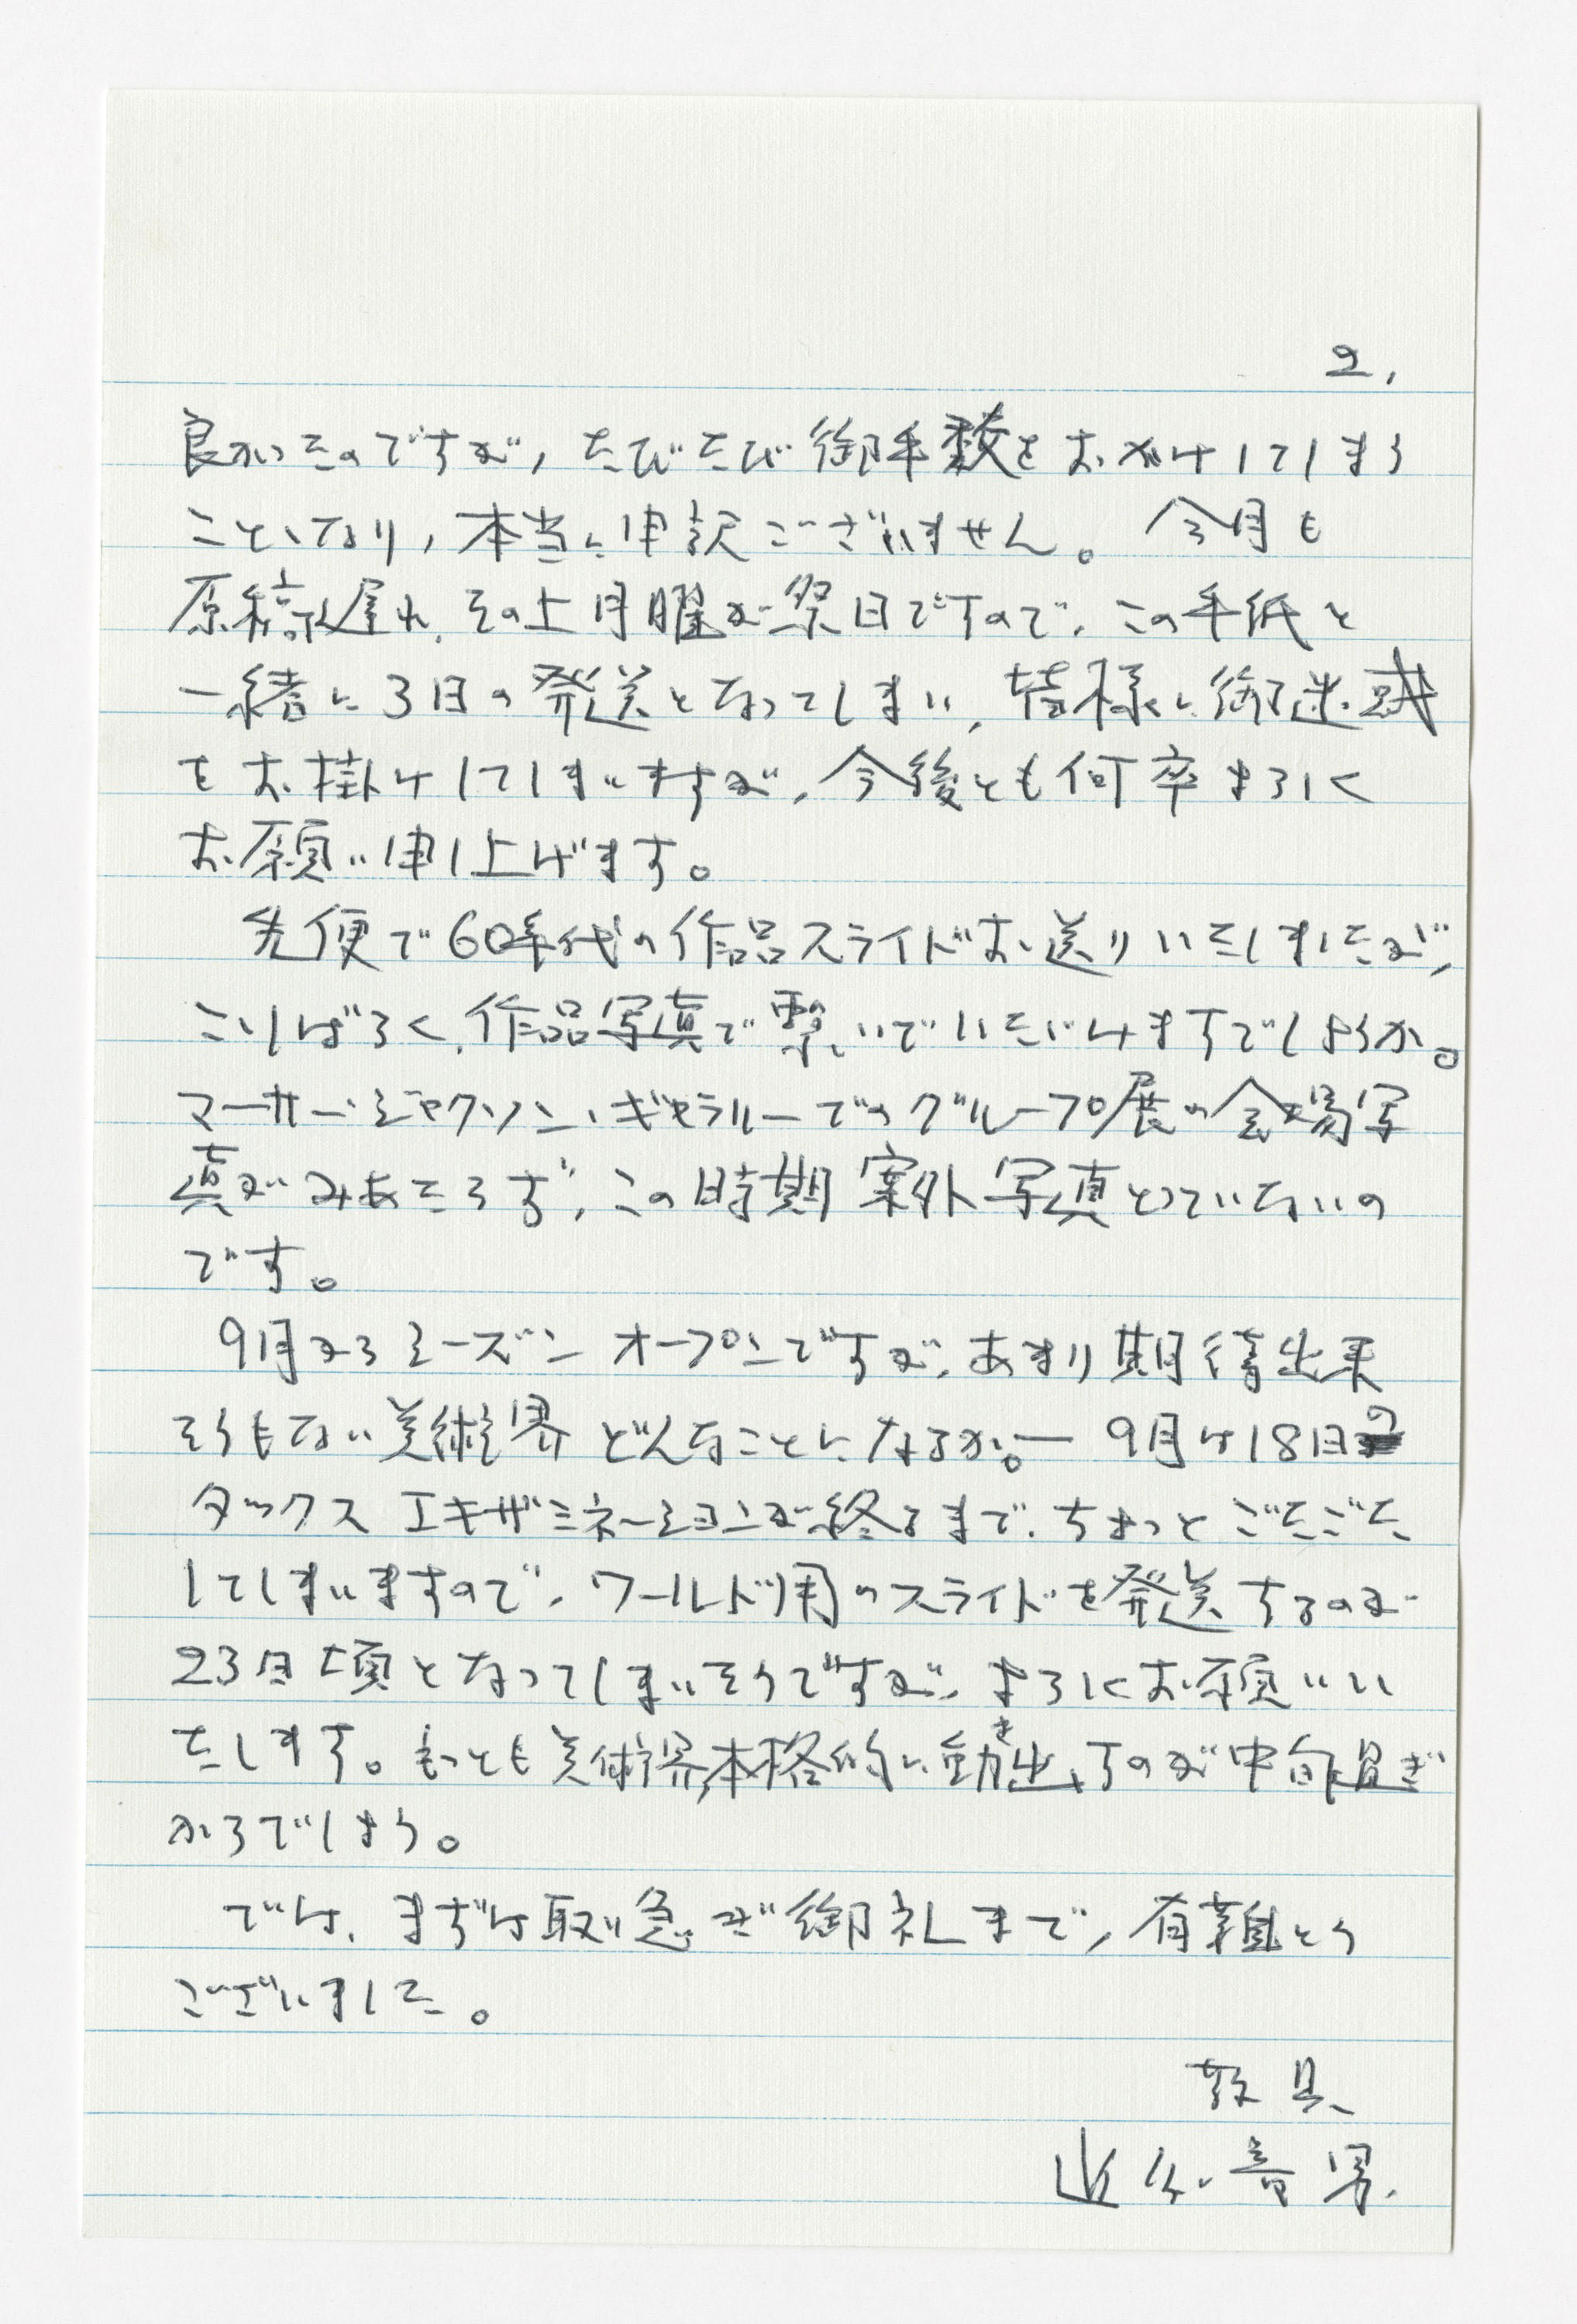 2,
良かったのですが，たびたび御手数をおかけしてしまう
ことになり，本当に申訳ございません。今月も
原稿遅れ，その上月曜が祭日ですので，この手紙と
一緒に3日の発送となってしまい，皆様に御迷惑
をお掛けしてしまいますが，今後とも何卒よろしく
お願い申し上げます。
先便で60年代の作品スライドお送りいたしましたが，
こゝしばらく，作品写真で繋いでいただけますでしょうか。
マーサー・ジャクソン・ギャラリーでのグループ展の会場写
真がみあたらず，この時期案外写真とっていないの
です。
9月からシーズンオープンですが，あまり期待出来
そうもない美術界どんなことになるか。― 9月は18日
タックスエキザミネーションが終るまで，ちょっとごたごた
してしまいますので，ワールド用のスライドを発送するのが
23日頃となってしまいそうですが，よろしくお願いい
たします。もっとも美術界，本格的に動き出すのが中旬過ぎ
からでしょう。
では，まずは取り急ぎ御礼まで，有難とう
ございました。
敬具、
近 竜男.